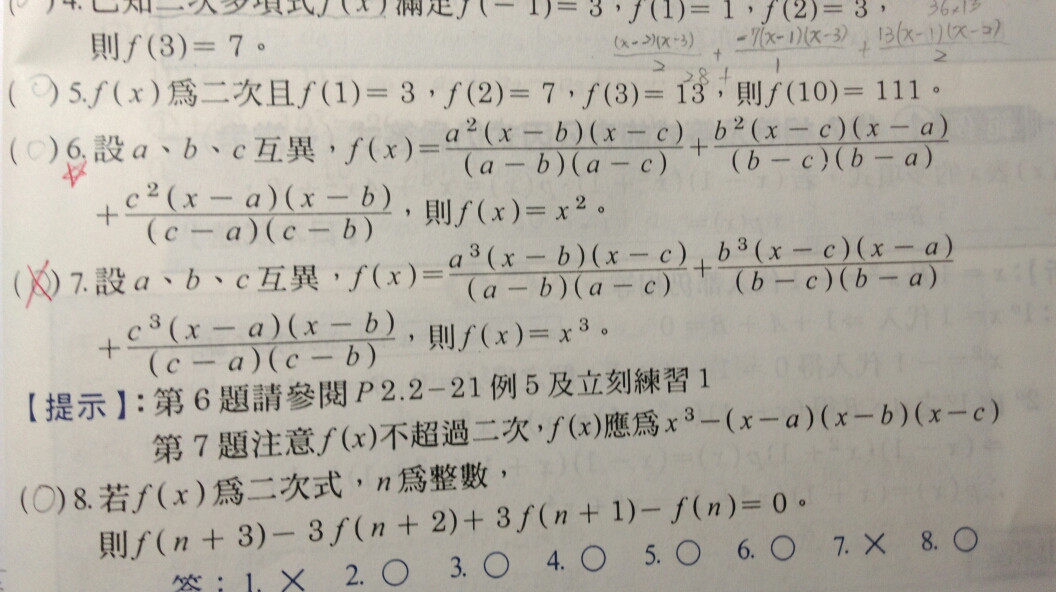 4.已知二次多項式f(x)滿足f(-1)=3,f(1)=1,f(2)=3,
36.13
則f(3)=7。
(x-2)(x-3)/2 + -7(x-1)(x-3)/1 + 13(x-1)(x-2)/2
28+
(○)5.f(x)為二次且f(1)=3,f(2)=7,f(3)=13,則f(10)=111。
(○)6.設a、b、c互異,f(x)=a²(x-b)(x-c)/(a-b)(a-c)+b²(x-c)(x-a)/(b-c)(b-a)
+c²(x-a)(x-b)/(c-a)(c-b),則f(x)=x²。
(X)7.設a、b、c互異,f(x)=a³(x-b)(x-c)/(a-b)(a-c)+b³(x-c)(x-a)/(b-c)(b-a)
+c³(x-a)(x-b)/(c-a)(c-b),則f(x)=x³。
【提示】:第6題請參閱P2.2-21例5及立刻練習1
第7題注意f(x)不超過二次,f(x)應為x³-(x-a)(x-b)(x-c)
(○)8.若f(x)為二次式,n為整數,
則f(n+3)-3f(n+2)+3f(n+1)-f(n)=0。
答:1.× 2.○ 3.○ 4.○ 5.○ 6.○ 7.× 8.○